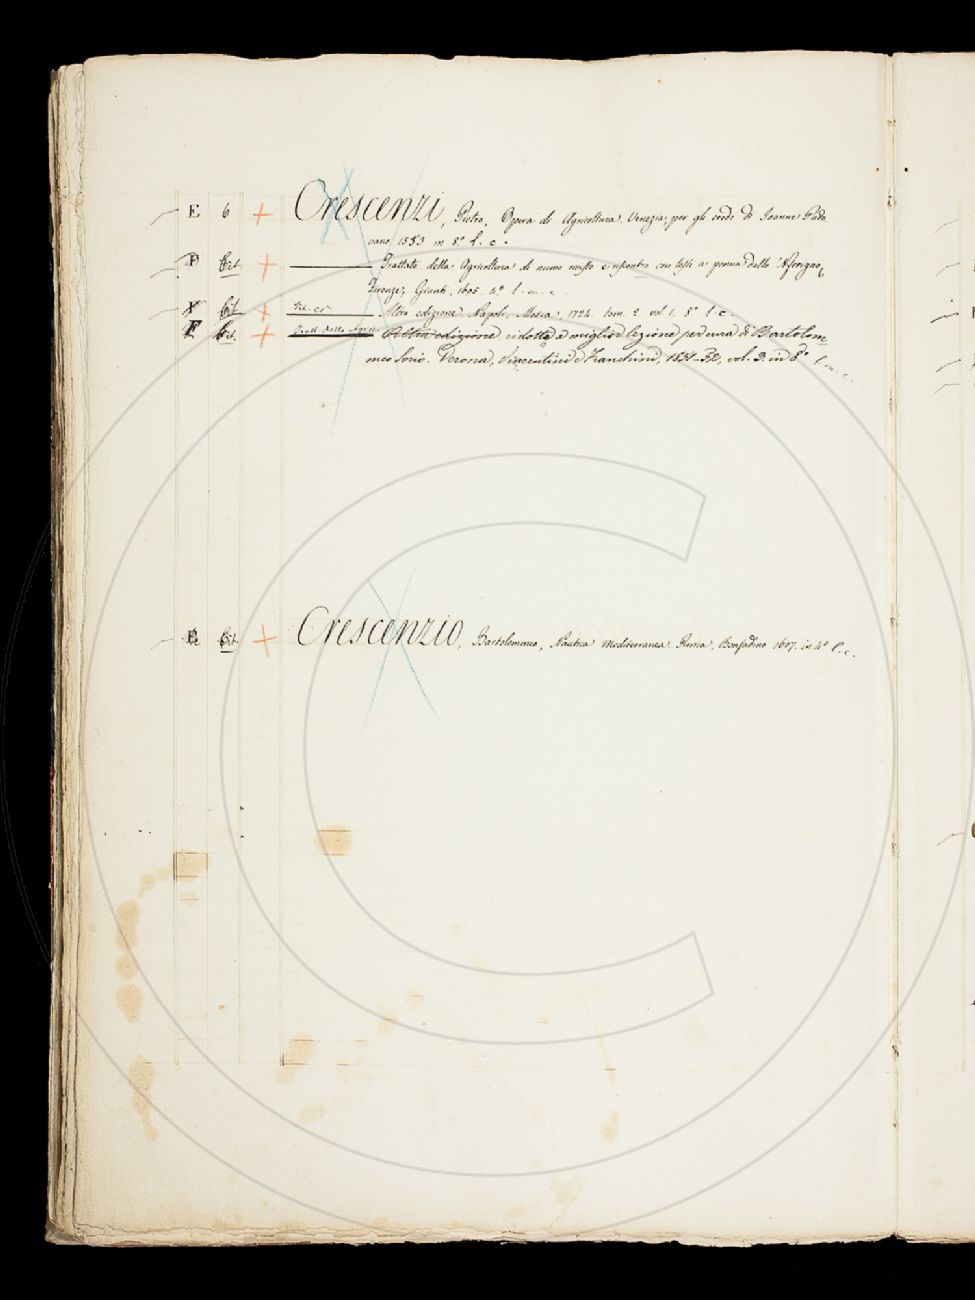 E 6 + Crescenzi, Pietro, Opera di Agricoltura. Venezia, per gli eredi di Joanne Padu
vano 1553 in 8.° l. c.
Trattato della Agricoltura di nuovo rivisto e riscontro con testi a penna dallo 'Nferigno,
Firenze, Giunti, 1605. 4.° l. m. c.
Altra edizione Napoli, Mosca 1724. tom. 2 vol. 1. 8.° l. c.
Altra edizione ridotta a miglior lezione per cura di Bartolom=
meo Sorio. Verona, Vicentini e Franchini, 1851-52, vol. 3. in 8.° l. m. c.
+ Crescenzio, Bartolommeo, Nautica Mediterranea. Roma, Bonfadino 1607. in 4.° l. c.
C